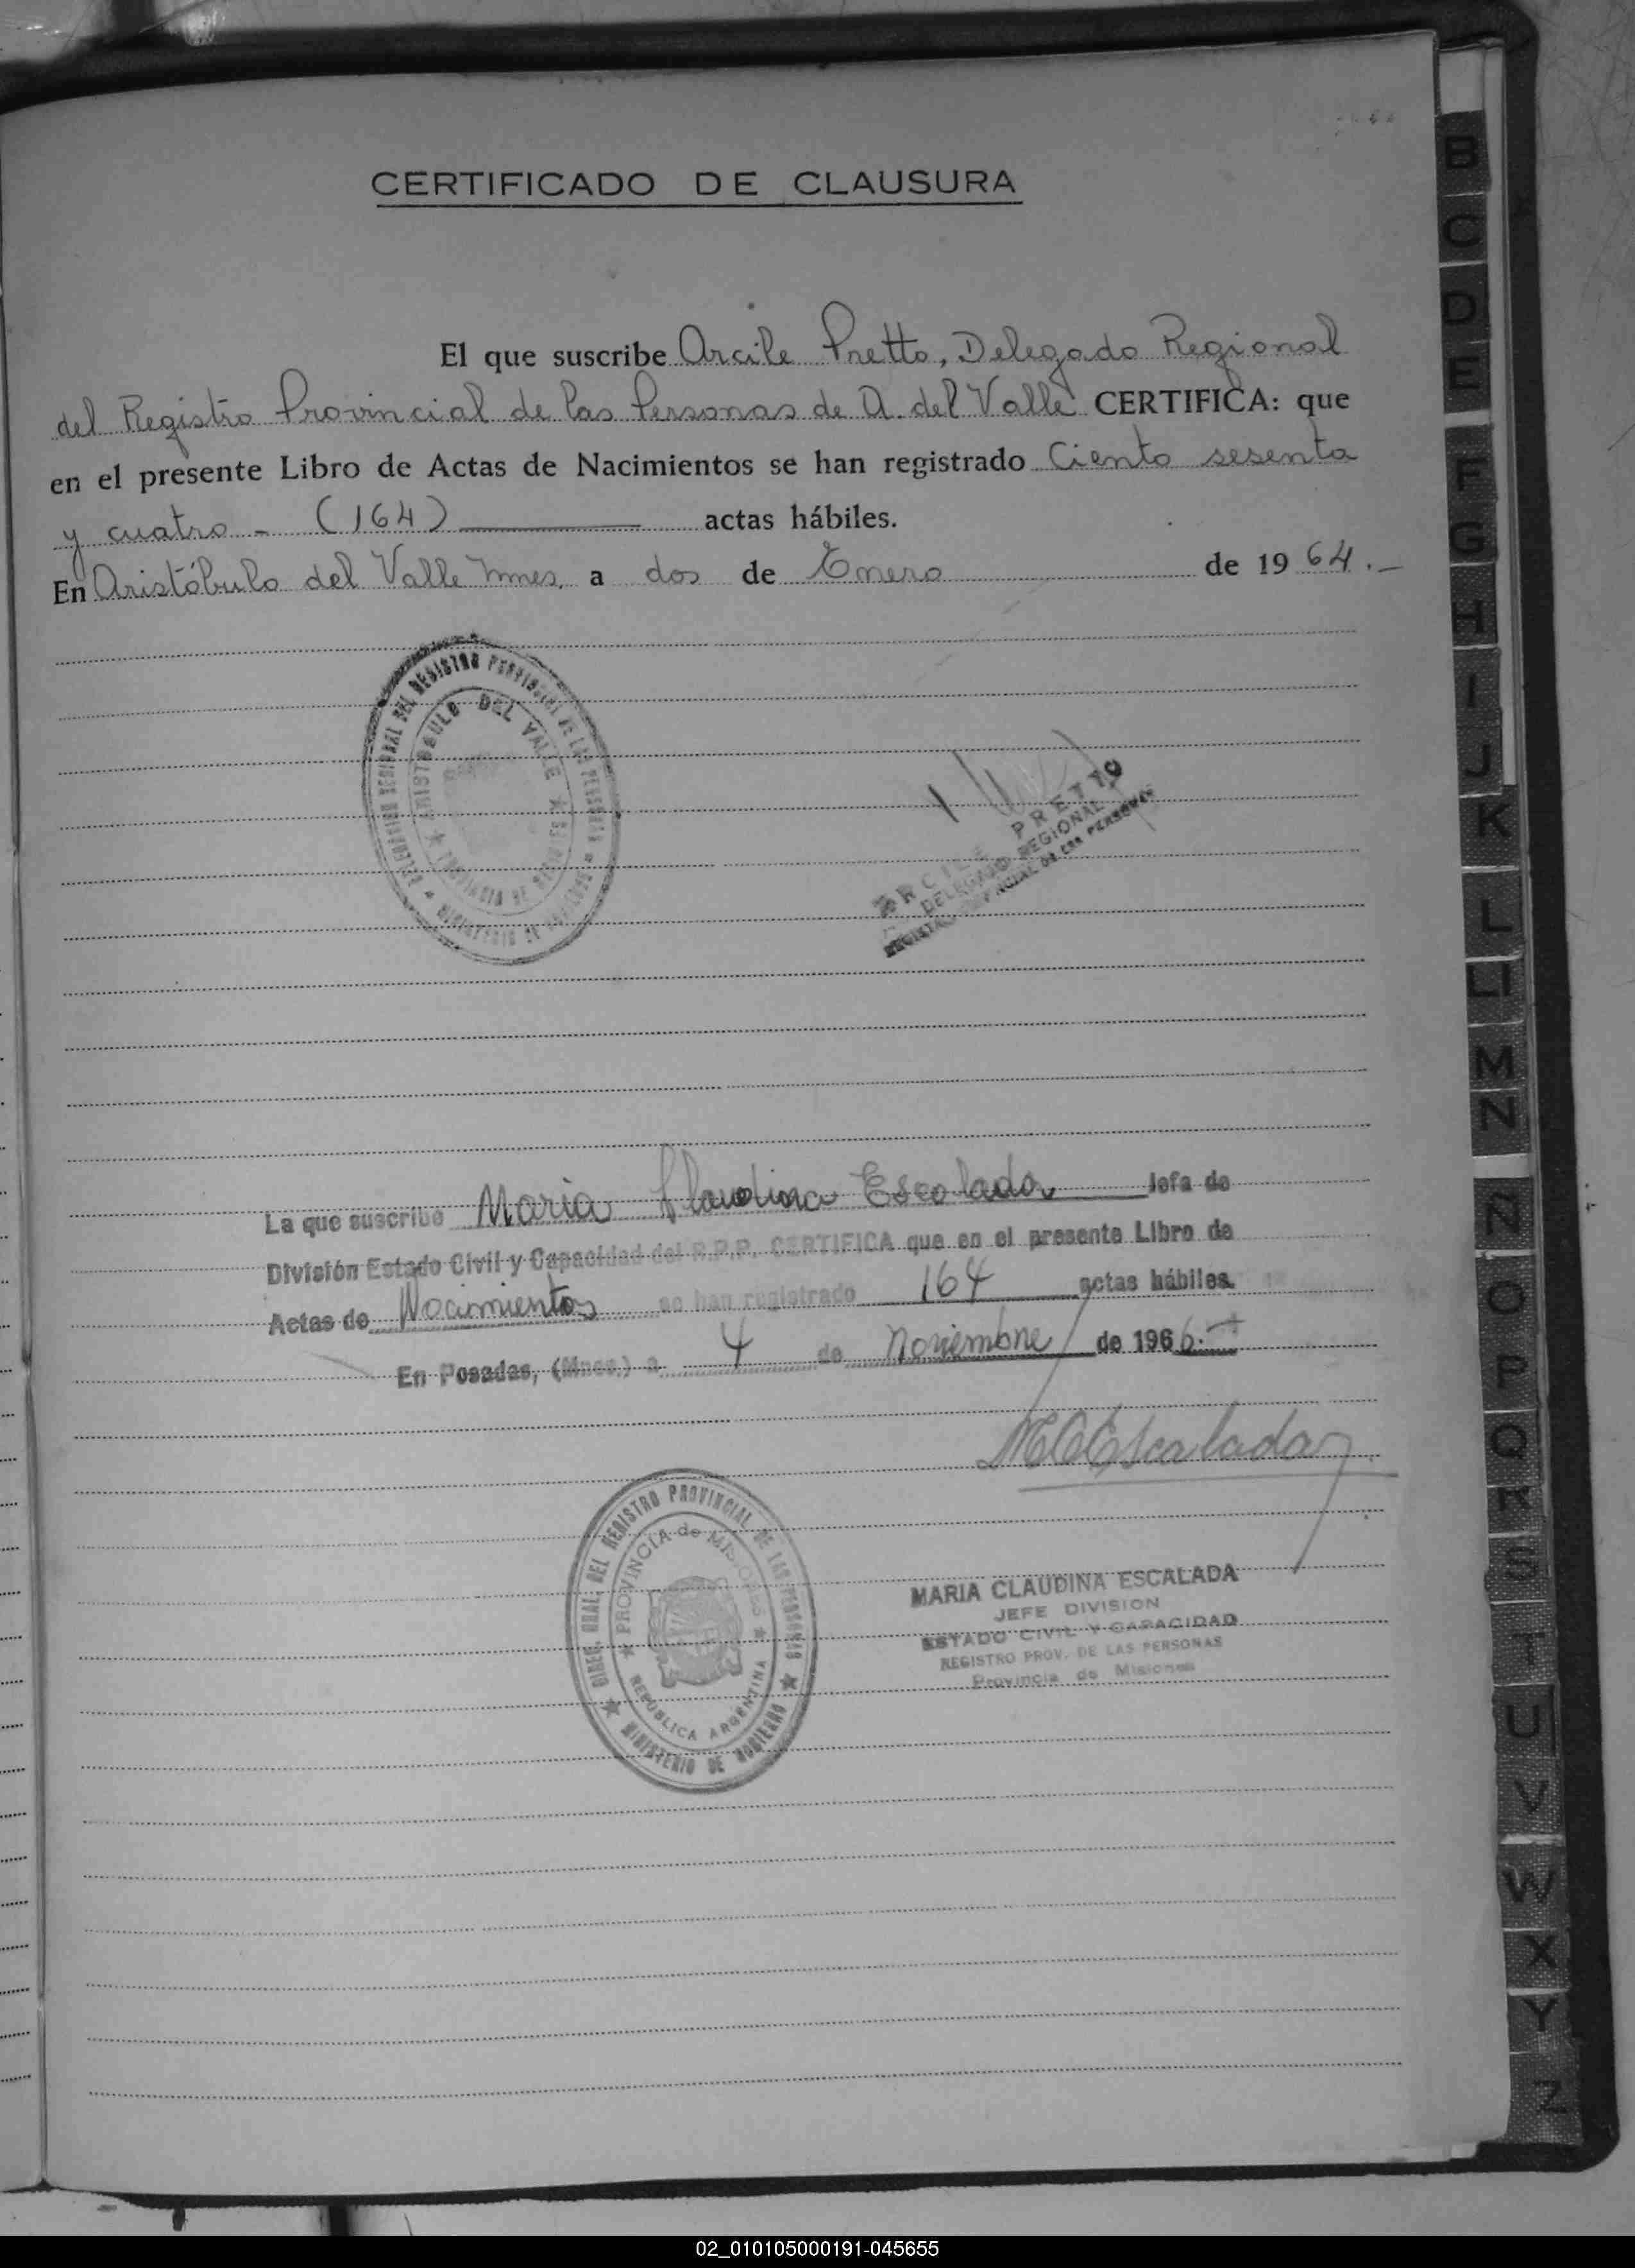 CERTIFICADO DE CLAUSURA
El que suscribe Arcile Pretto, Delegado Regional
del Registro Provincial de las Personas de A. del Valle CERTIFICA: que
en el presente Libro de Actas de Nacimientos se han registrado Ciento sesenta
y cuatro - (164) actas hábiles.
En Aristóbulo del Valle Mnes, a dos de Enero de 1964.-
DELEGACION REGIONAL DEL REGISTRO PROVINCIAL DE LAS PERSONAS
ARISTOBULO DEL VALLE
PROVINCIA DE MISIONES
MINISTERIO DE GOBIERNO
ARCILE PRETTO
DELEGADO REGIONAL
REGISTRO PROVINCIAL DE LAS PERSONAS
La que suscribe Maria Claudina Escalada Jefa de
División Estado Civil y Capacidad del R.P.P. CERTIFICA que en el presente Libro de
Actas de Nacimientos se han registrado 164 actas hábiles.
En Posadas, (Mnes.) a 4 de Noviembre de 1966.-
MCEscalada
DIREC. GRAL. DEL REGISTRO PROVINCIAL DE LAS PERSONAS
PROVINCIA de MISIONES
REPUBLICA ARGENTINA
MINISTERIO DE GOBIERNO
MARIA CLAUDINA ESCALADA
JEFE DIVISION
ESTADO CIVIL Y CAPACIDAD
REGISTRO PROV. DE LAS PERSONAS
Provincia de Misiones
B
C
D
E
F
G
H
I
J
K
L
Ll
M
N
Ñ
O
P
Q
R
S
T
U
V
W
X
Y
Z
02_010105000191-045655